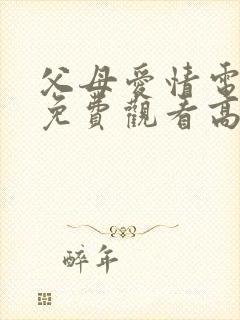 父母爱情電
免費觀看高
醉年